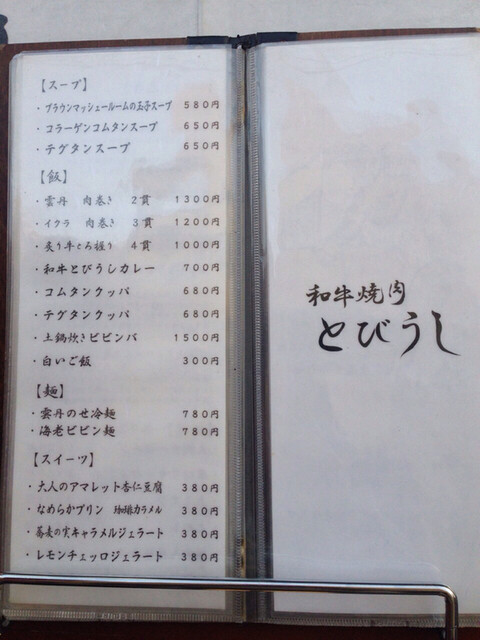 【スープ】
・ブラウンマッシュールームの玉子スープ 580円
・コラーゲンコムタンスープ 650円
・テグタンスープ 650円
【飯】
・雲丹 肉巻き 2貫 1300円
・イクラ 肉巻き 3貫 1200円
・炙り牛とろ握り 4貫 1000円
・和牛とびうしカレー 700円
・コムタンクッパ 680円
・テグタンクッパ 680円
・土鍋炊きビビンバ 1500円
・白いご飯 300円
【麺】
・雲丹のせ冷麺 780円
・海老ビビン麺 780円
【スイーツ】
・大人のアマレット杏仁豆腐 380円
・なめらかプリン 珈琲カラメル 380円
・蕎麦の実キャラメルジェラート 380円
・レモンチェッロジェラート 380円
和牛焼肉
とびうし